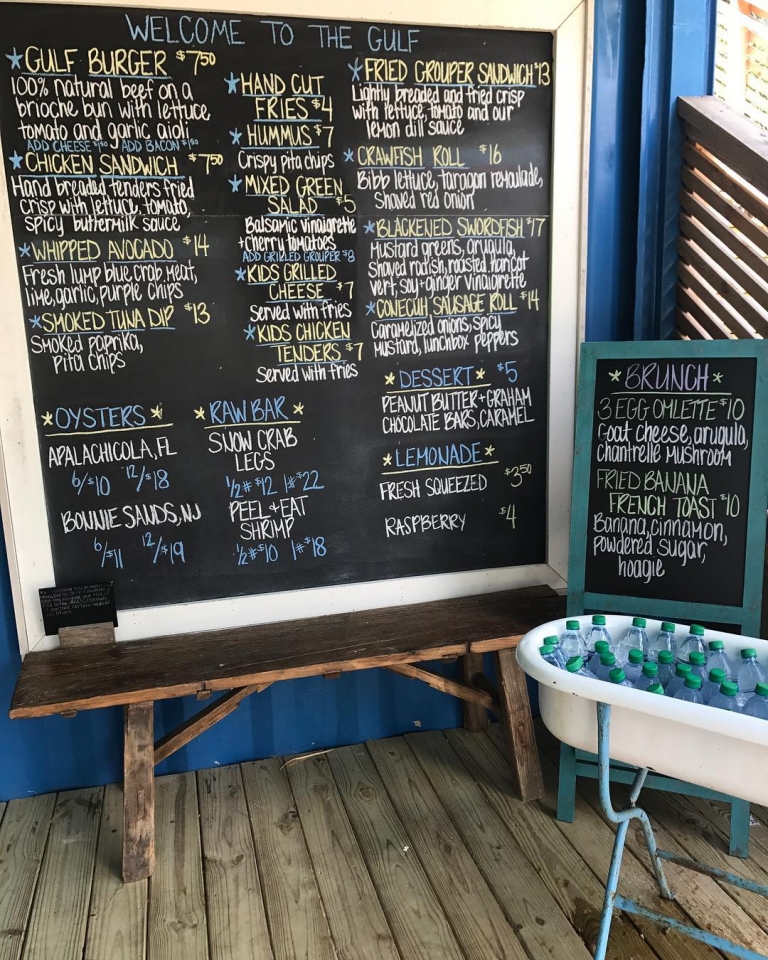 WELCOME TO THE GULF
★GULF BURGER $7⁵⁰
100% natural beef on a
brioche bun with lettuce
tomato and garlic aioli
ADD CHEESE $1⁵⁰ ADD BACON $1⁵⁰
★CHICKEN SANDWICH $7⁵⁰
Hand breaded tenders fried
crisp with lettuce, tomato,
spicy buttermilk sauce
★WHIPPED AVOCADO $14
Fresh lump blue crab meat,
lime, garlic, purple chips
★SMOKED TUNA DIP $13
Smoked paprika,
pita chips
★HAND CUT
FRIES $4
★HUMMUS $7
Crispy pita chips
★MIXED GREEN
SALAD $5
Balsamic vinaigrette
+cherry tomatoes
ADD GRILLED GROUPER $8
★KIDS GRILLED
CHEESE $7
Served with fries
★KIDS CHICKEN
TENDERS $7
Served with fries
★FRIED GROUPER SANDWICH $13
Lightly breaded and fried crisp
with lettuce, tomato and our
lemon dill sauce
★CRAWFISH ROLL $16
Bibb lettuce, tarragon remoulade,
Shaved red onion
★BLACKENED SWORDFISH $17
Mustard greens, arugula,
shaved radish, roasted haricot
vert, soy+ginger vinaigrette
★CONECUH SAUSAGE ROLL $14
Caramelized onions, spicy
mustard, lunchbox peppers
★OYSTERS★
APALACHICOLA, FL
6/$10 12/$18
BONNIE SANDS, NJ
6/$11 12/$19
★RAW BAR★
SNOW CRAB
LEGS
½# $12 1# $22
PEEL+EAT
SHRIMP
½# $10 1# $18
★DESSERT★ $5
PEANUT BUTTER+GRAHAM
CHOCOLATE BARS, CARAMEL
★LEMONADE★
FRESH SQUEEZED $3⁵⁰
RASPBERRY $4
★BRUNCH★
3 EGG OMLETTE $10
Goat cheese, arugula,
chantrelle mushroom
FRIED BANANA
FRENCH TOAST $10
Banana, cinnamon,
powdered sugar,
hoagie